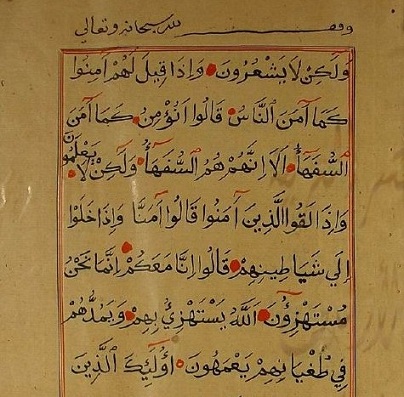 وقف لله سبحانه وتعالى
وَلَكِنْ لَا يَشْعُرُونَ وَإِذَا قِيلَ لَهُمْ آمِنُوا
كَمَا آمَنَ النَّاسُ قَالُوا أَنُؤْمِنُ كَمَا آمَنَ
السُّفَهَاءُ أَلَا إِنَّهُمْ هُمُ السُّفَهَاءُ وَلَكِنْ لَا يَعْلَمُونَ
وَإِذَا لَقُوا الَّذِينَ آمَنُوا قَالُوا آمَنَّا وَإِذَا خَلَوْا
إِلَى شَيَاطِينِهِمْ قَالُوا إِنَّا مَعَكُمْ إِنَّمَا نَحْنُ
مُسْتَهْزِؤُنَ اللَّهُ يَسْتَهْزِئُ بِهِمْ وَيَمُدُّهُمْ
فِي طُغْيَانِهِمْ يَعْمَهُونَ أُولَئِكَ الَّذِينَ